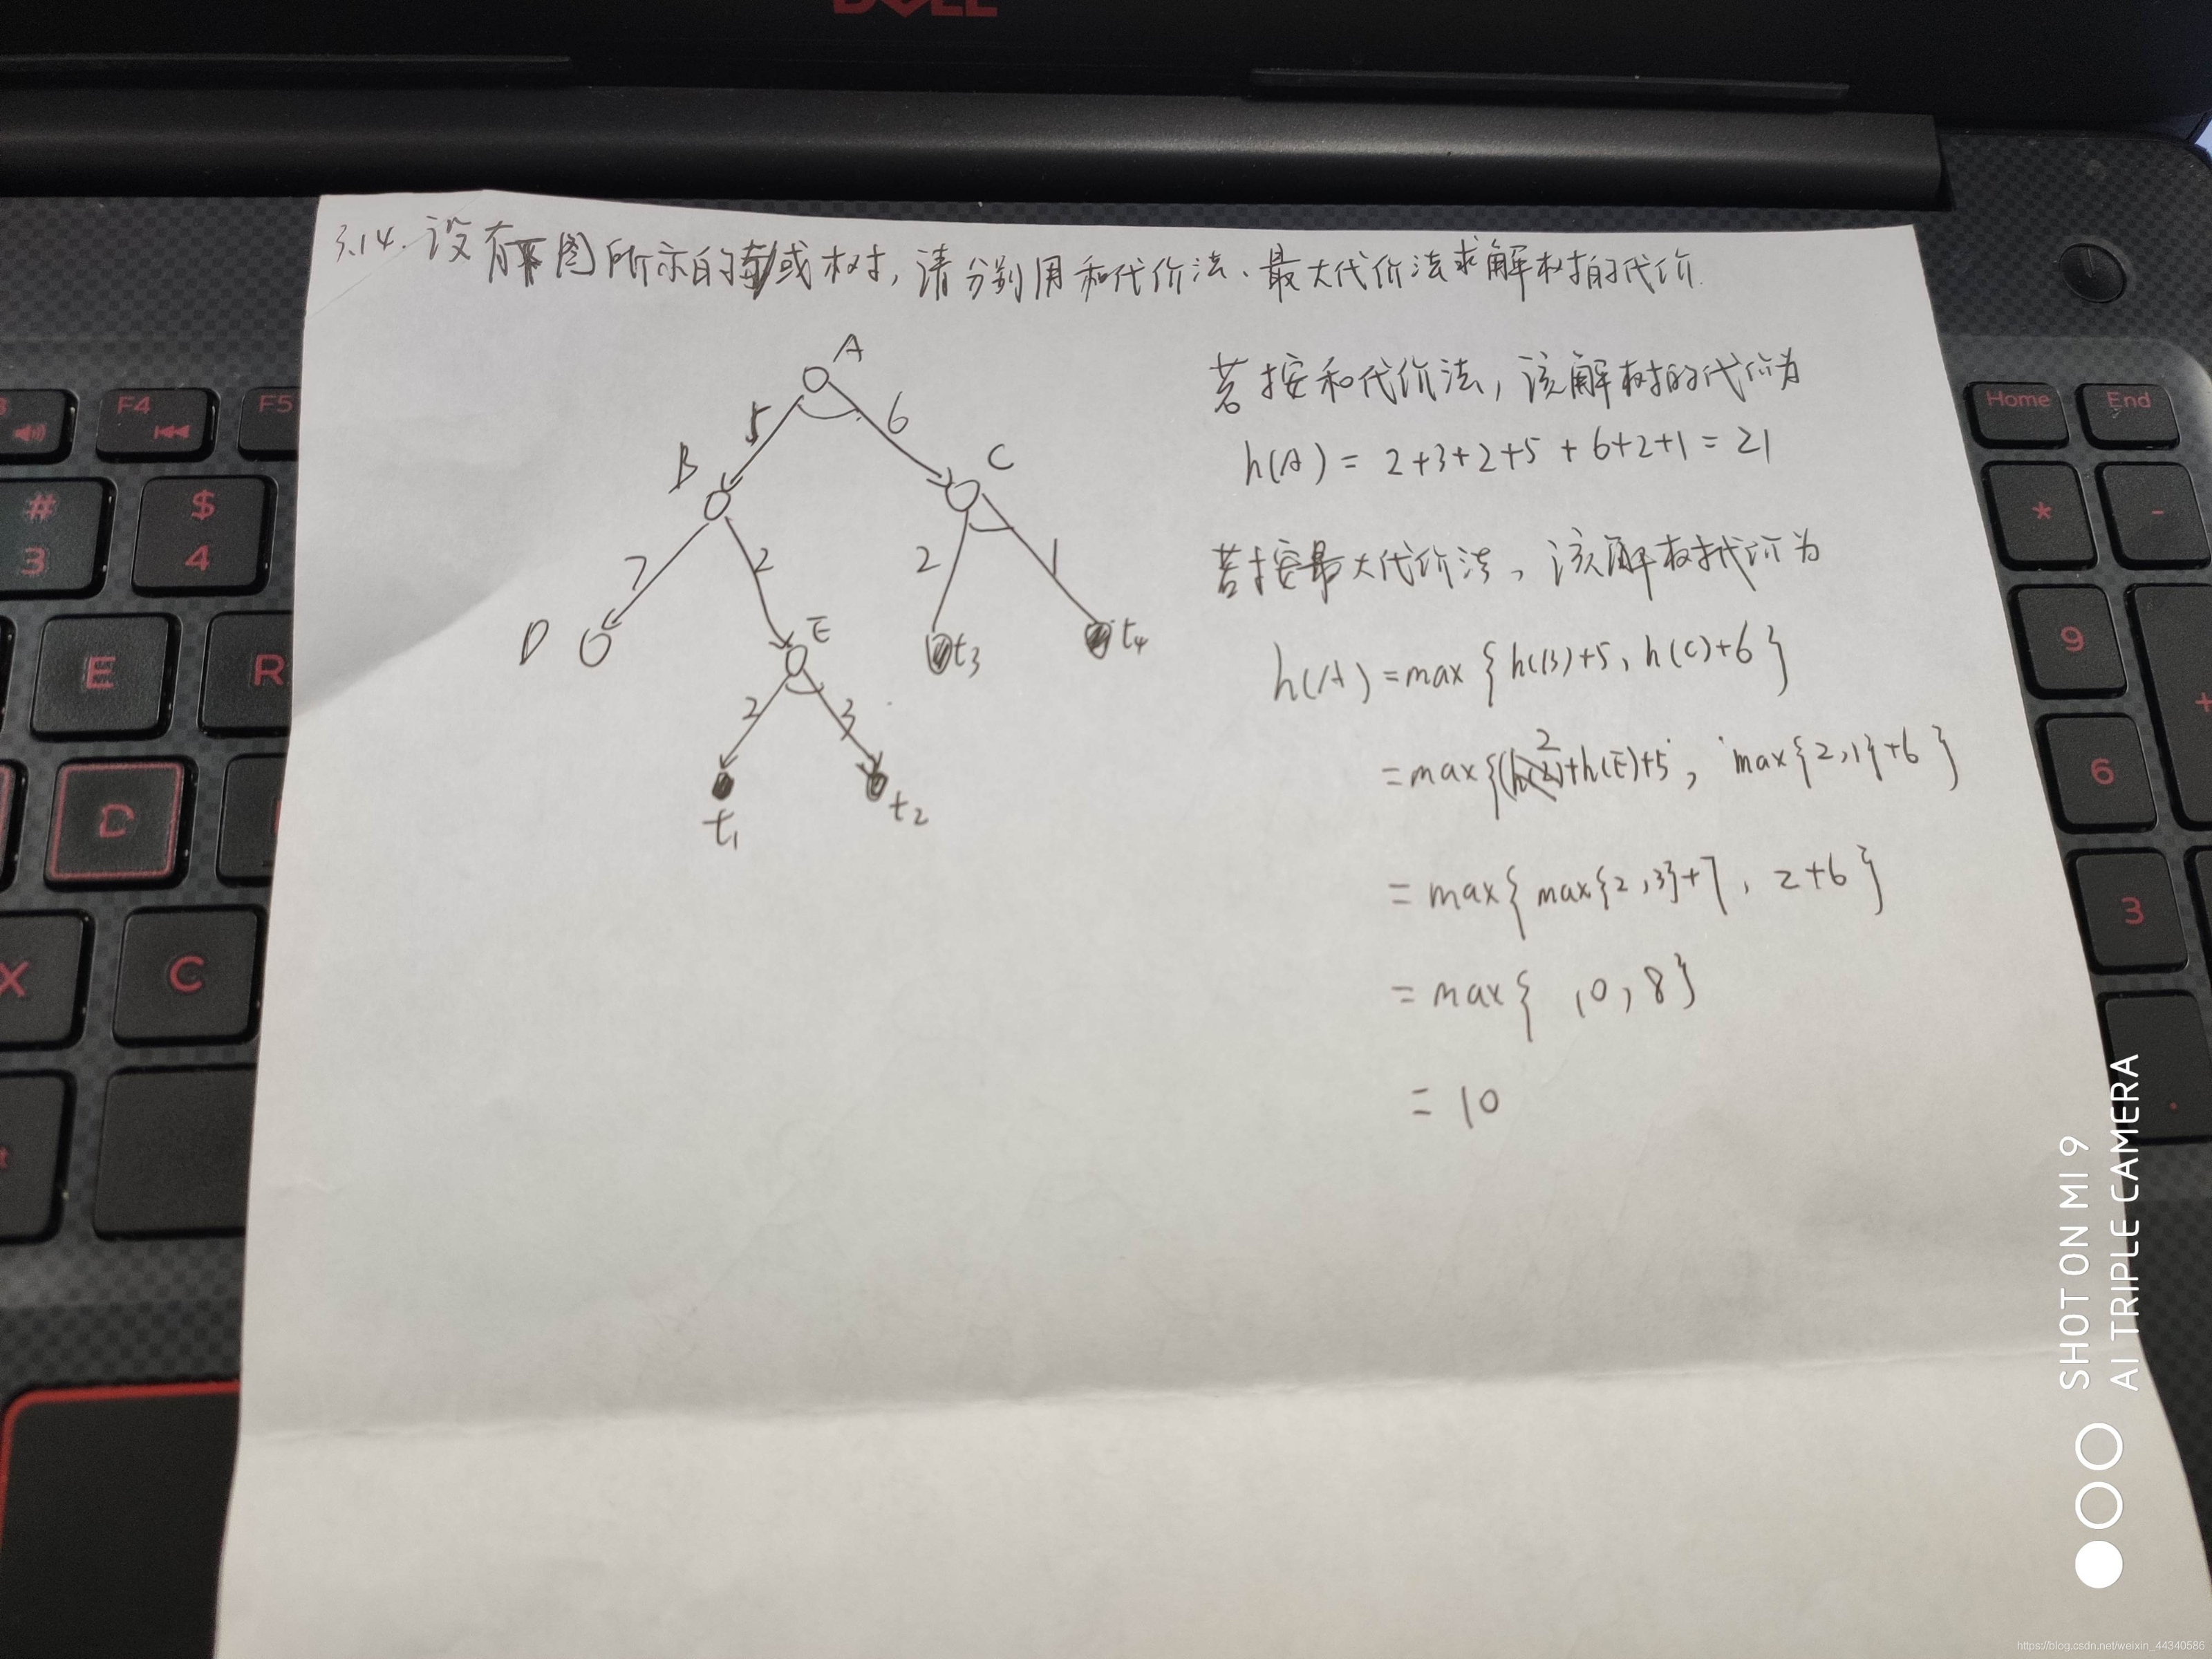 DELL
3.14. 设有下图所示的与/或树,请分别用和代价法、最大代价法求解树的代价.
A
5
6
B
C
7
2
2
1
D
E
t3
t4
2
3
t1
t2
若按和代价法,该解树的代价为
h(A) = 2+3+2+5+6+2+1=21
若按最大代价法,该解树代价为
h(A) =max{h(B)+5, h(C)+6}
=max{(2+h(E)+5, max{2,1}+6}
= max{max{2,3}+7, 2+6}
= max{10,8}
= 10
F4
F5
#
3
$
4
E
R
D
X
C
Home
End
*
-
9
6
+
3
.
SHOT ON MI 9
AI TRIPLE CAMERA
https://blog.csdn.net/weixin_44340586